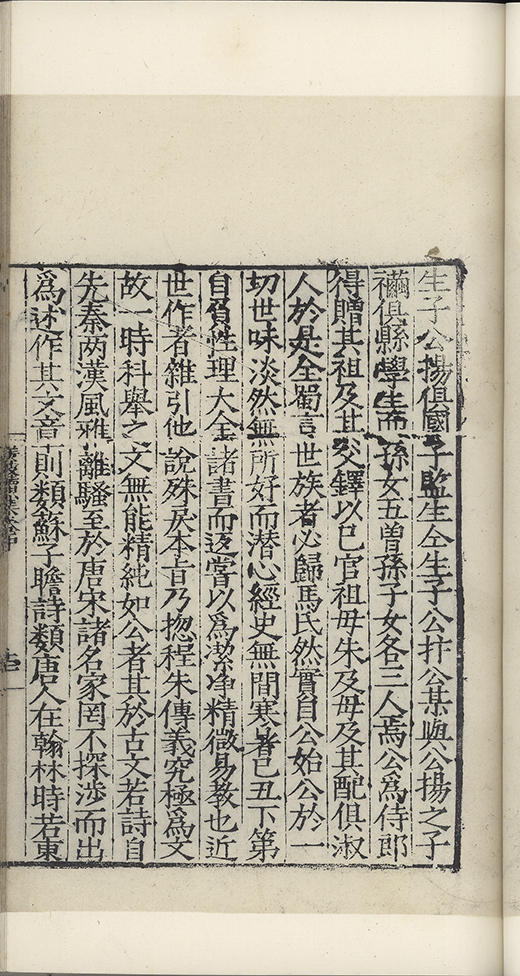 生子公揚俱國子監生仝生子公抃公某與公揚之子
禴俱縣學生孫女五曾孫子女各三人焉公爲侍郎
得贈其祖及其父鐸以巳官祖母朱及母及其配俱淑
人於是全蜀言世族者必歸馬氏然實自公始公於一
切世味淡然無所好而潜心經史無間寒暑巳丑下第
自負性理大全諸書而返嘗以爲潔净精微易教也近
世作者雜引他說殊戾本旨乃揔程朱傳義究極爲文
故一時科舉之文無能精純如公者其於古文若詩自
先秦两漢風雅離騷至於唐宋諸名家罔不探涉而出
爲述作其文音則類蘇子瞻詩類唐人在翰林時若東